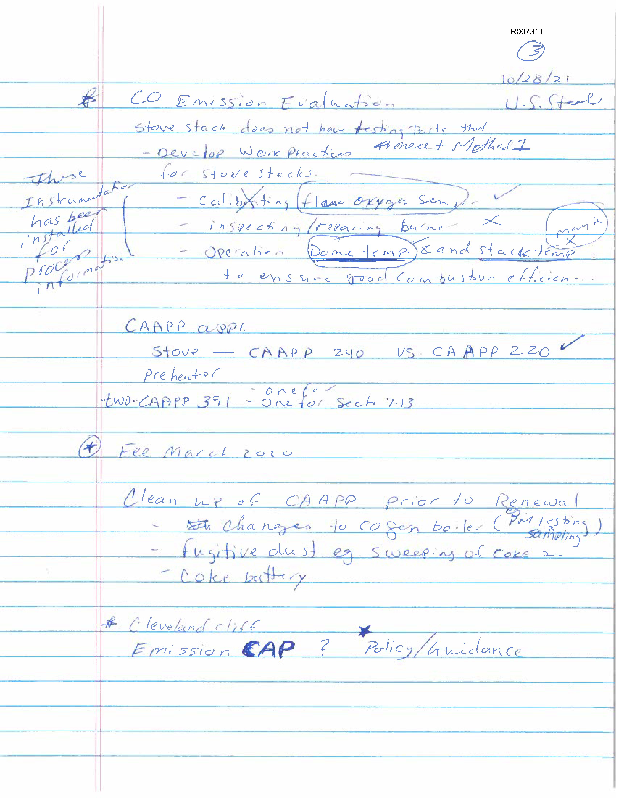 3
10/28/21
* CO Emission Evaluation U.S. Steel
Stove stack does not have testing that
- Develop Work Practices Method 1
for stove stacks.
These
Instrumentation
has been
installed
for
process
information
- Calibrating flame oxygen ✓
- inspecting/repairing burner X
- Operation Dome temp & and stack temp
to ensure good combustion
CAAPP appl.
Stove — CAAPP 240 VS. CAAPP 220 ✓
Preheater
- one for
-two-CAAPP 391 - One for Sect 7.13
* Fee March 2020
Clean up of CAAPP prior to Renewal
- changes to cogen boiler (PM testing)
sampling
- fugitive dust eg sweeping of coke
- Coke battery
* Cleveland cliff
Emission CAP ? * Policy/Guidance